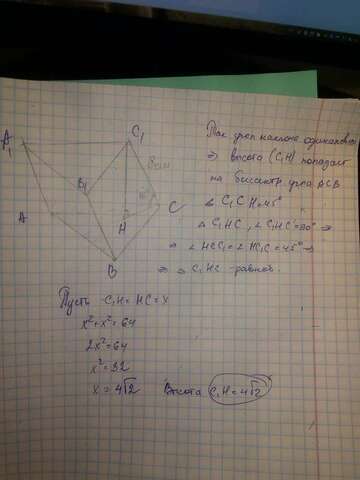 A₁
C₁
8 см
B₁
45°
A
H
C
B
Так угол наклона одинаковы
⇒ высота (C₁H) попадает
на биссектр. угла ACB
∠ C₁CH=45°
△ C₁HC, ∠ C₁HC=90° ⇒
⇒ ∠ HCC₁=∠ HC₁C=45° ⇒
⇒ △ C₁HC -равноб.
Пусть C₁H=HC=x
x²+x²=64
2x²=64
x²=32
x=4√2 Высота C₁H=4√2